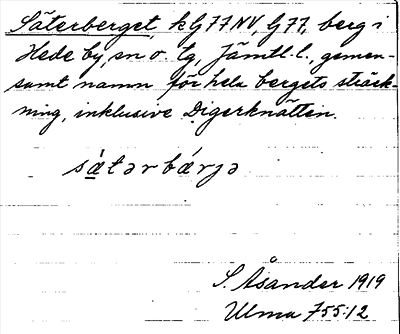 Säterberget, kG77NV, G77, berg i
Hede by, sn o. tg, Jämtl. l., gemen-
samt namn för hela bergets sträck-
ning, inklusive Digerknätten.
sá̱tərbárjə
S. Åsander 1919
Ulma 755:12